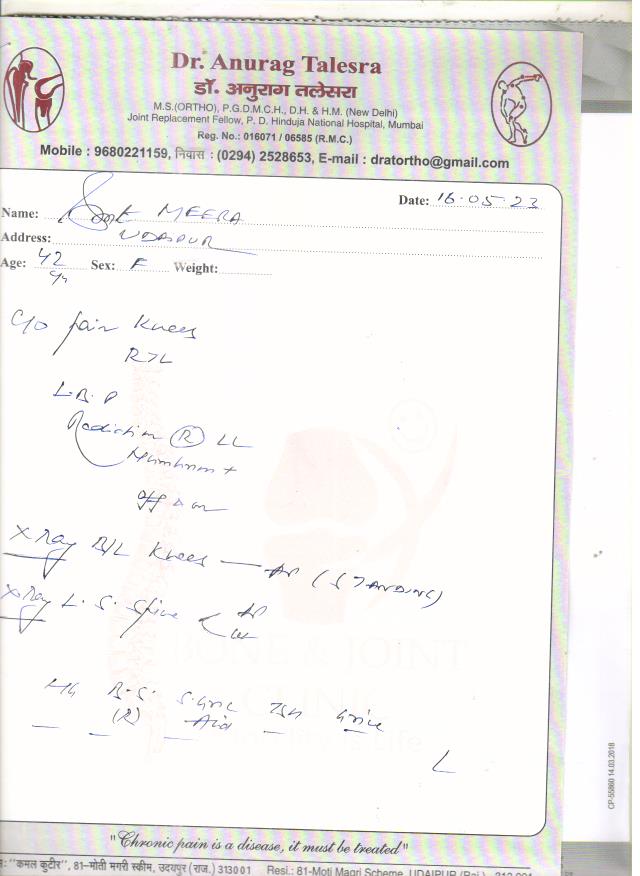 Dr. Anurag Talesra
डॉ. अनुराग तलेसरा
M.S.(ORTHO), P.G.D.M.C.H., D.H. & H.M. (New Delhi)
Joint Replacement Fellow, P. D. Hinduja National Hospital, Mumbai
Reg. No.: 016071 / 06585 (R.M.C.)
Mobile : 9680221159, निवास : (0294) 2528653, E-mail : dratortho@gmail.com
Date: 16.05.23
Name: MEERA
Address: UDAIPUR
Age: 42 yrs Sex: F Weight:
C/o pain Knees
R>L
L.B.P
Radiation (R) LL
Numbness +
X Ray B/L Knees — AP (STANDING)
X Ray L.S. Spine < AP
BONE & JOINT
CLINIC
Mobility is Life
Hb B.S. S. Uric TSH
(R) Acid
"Chronic pain is a disease, it must be treated"
"कमल कुटीर", 81-मोती मगरी स्कीम, उदयपुर (राज.) 313001 Resi.: 81-Moti Magri Scheme, UDAIPUR (Raj.)
CP-55860 14.03.2018